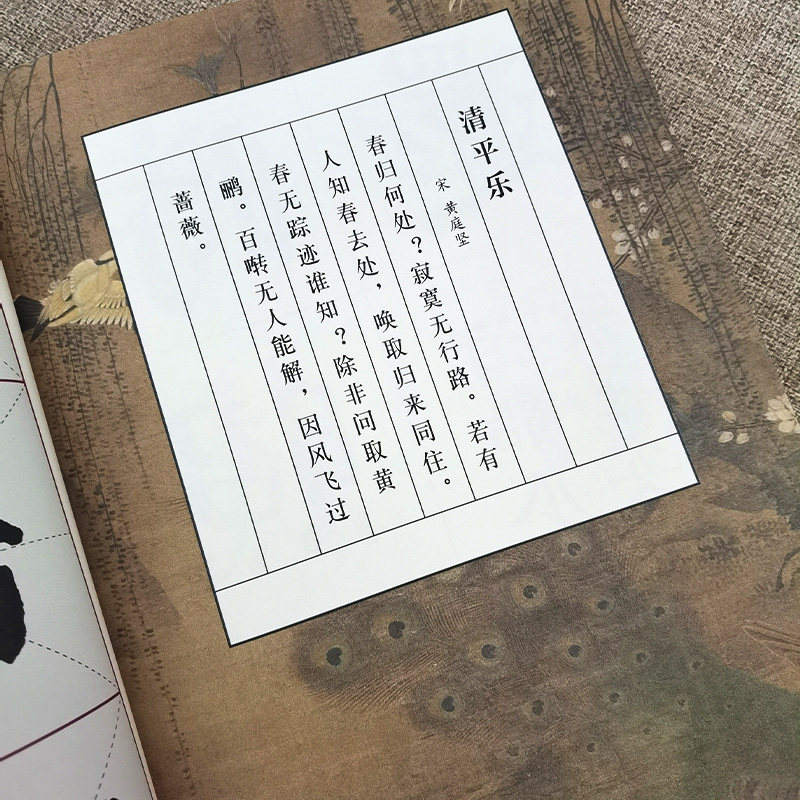 清平乐
宋 黄庭坚
春归何处？寂寞无行路。若有
人知春去处，唤取归来同住。
春无踪迹谁知？除非问取黄
鹂。百啭无人能解，因风飞过
蔷薇。